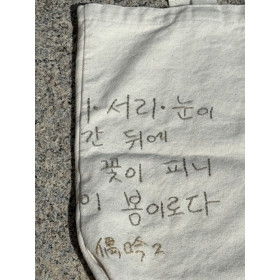 ·서리·눈이
간 뒤에
꽃이 피니
이 봄이로다
偶吟 2